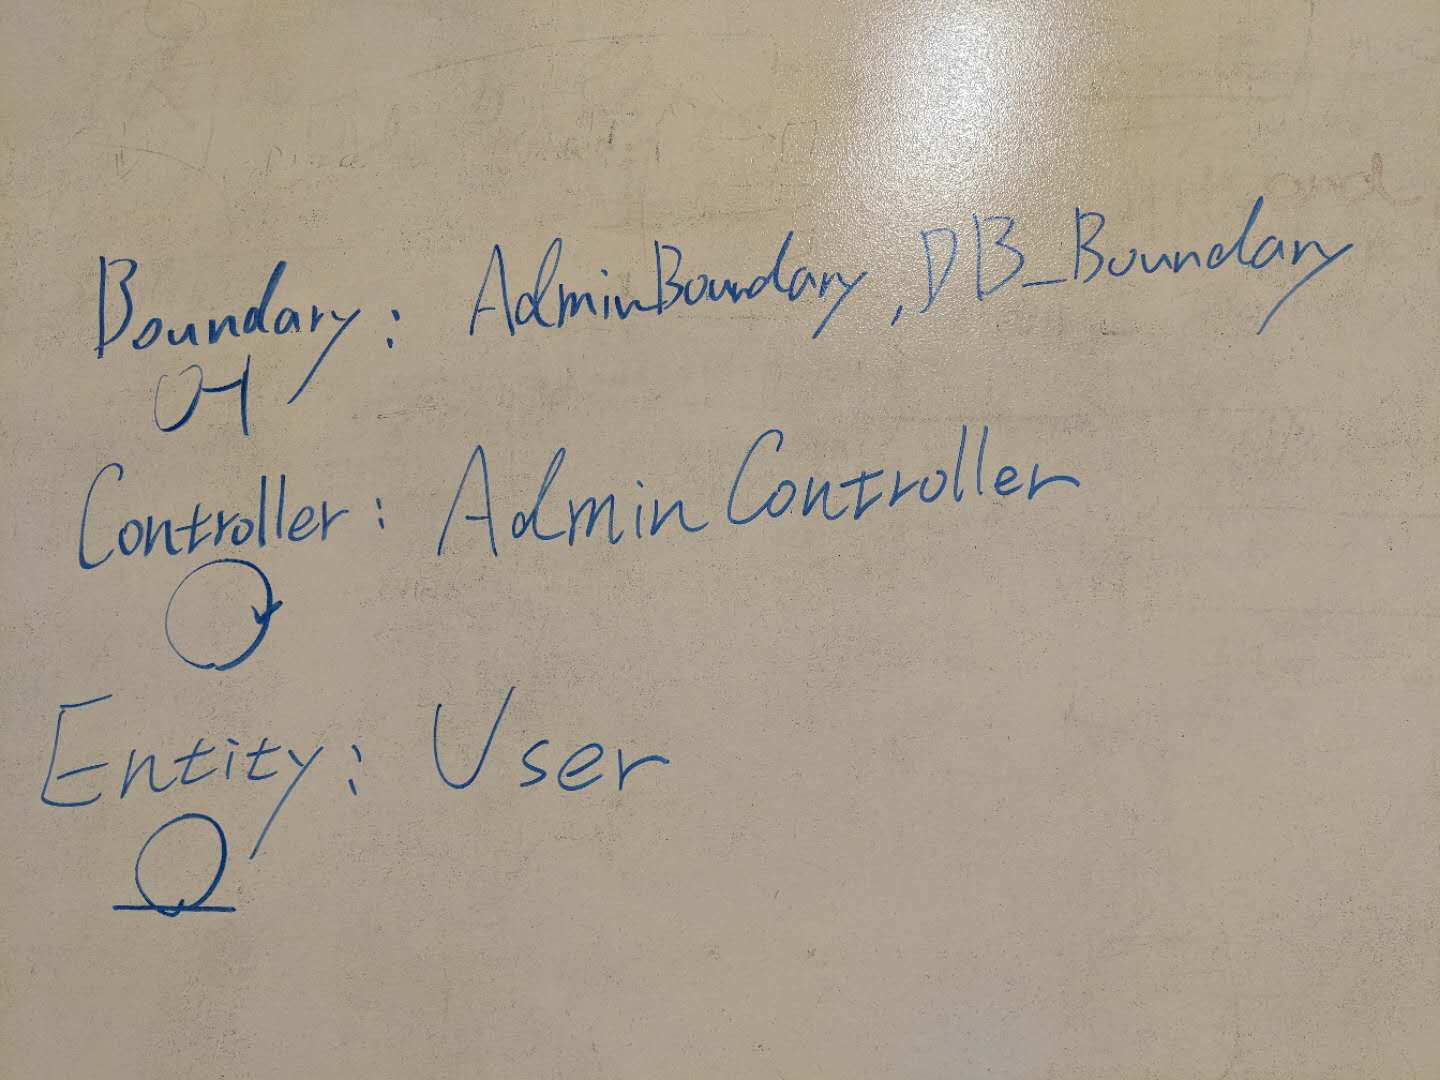 Boundary: AdminBoundary, DB_Boundary
Controller: AdminController
Entity: User